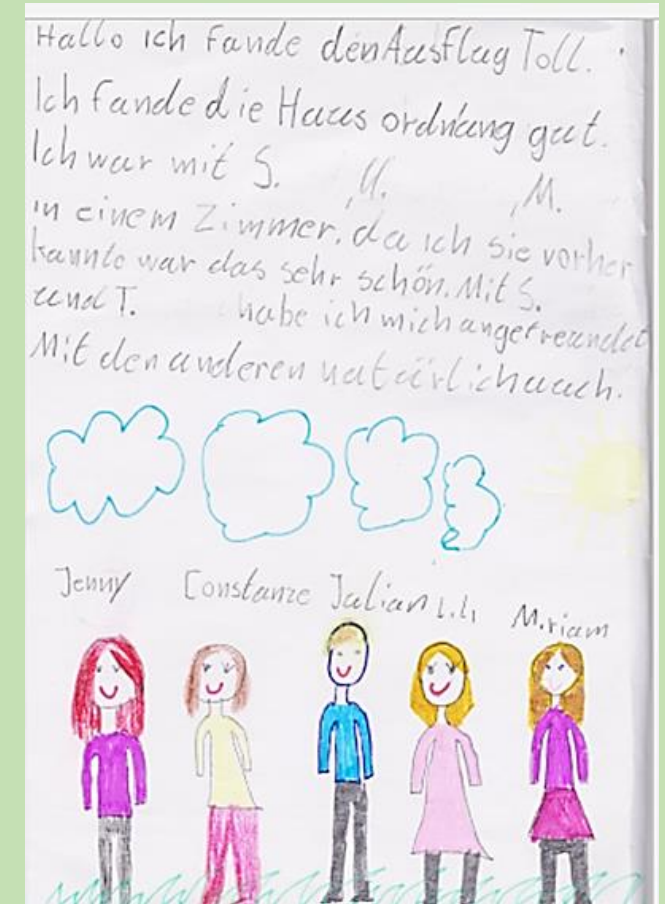 Hallo ich fande den Ausflug Toll.
Ich fande die Haus ordnung gut.
Ich war mit S. , U. , M.
in einem Zimmer. da ich sie vorher
kannte war das sehr schön. Mit S.
und T. habe ich mich angefreundet
Mit den anderen natürlich auch.
Jenny Constanze Julian Lili Miriam